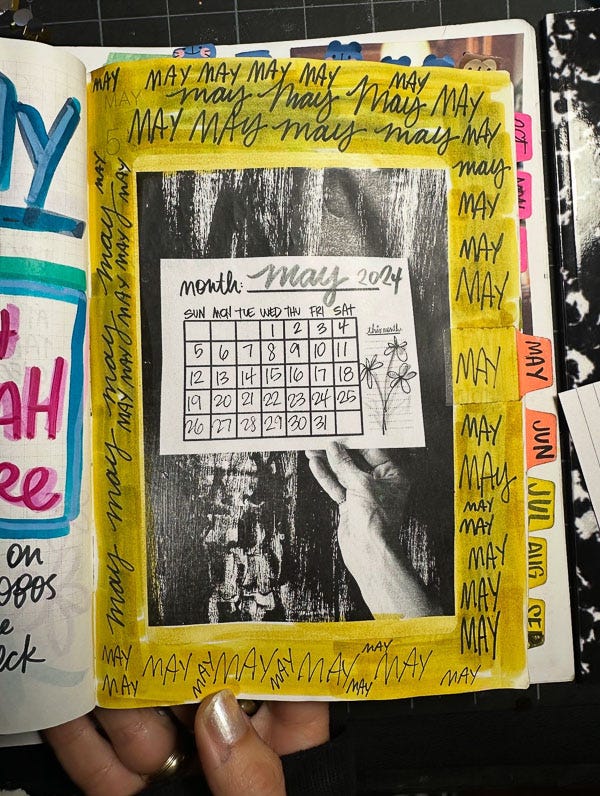 AH
ee
on
MAY MAY MAY MAY MAY MAY
MAY may may May MAY
5 MAY MAY may may MAY
may
MAY
MAY
MAY
MAY
MAY
MAY
MAY
MAY
MAY
MAY
MAY
MAY MAY
may may may may
MAY MAY MAY MAY MAY
month: may 2024
SUN MON TUE WED THU FRI SAT
1 2 3 4
5 6 7 8 9 10 11
12 13 14 15 16 17 18
19 20 21 22 23 24 25
26 27 28 29 30 31
this month
MAY MAY MAY MAY MAY MAY MAY MAY
MAY MAY MAY MAY
OCT
NOV
MAY
JUN
JUL
AUG
SE